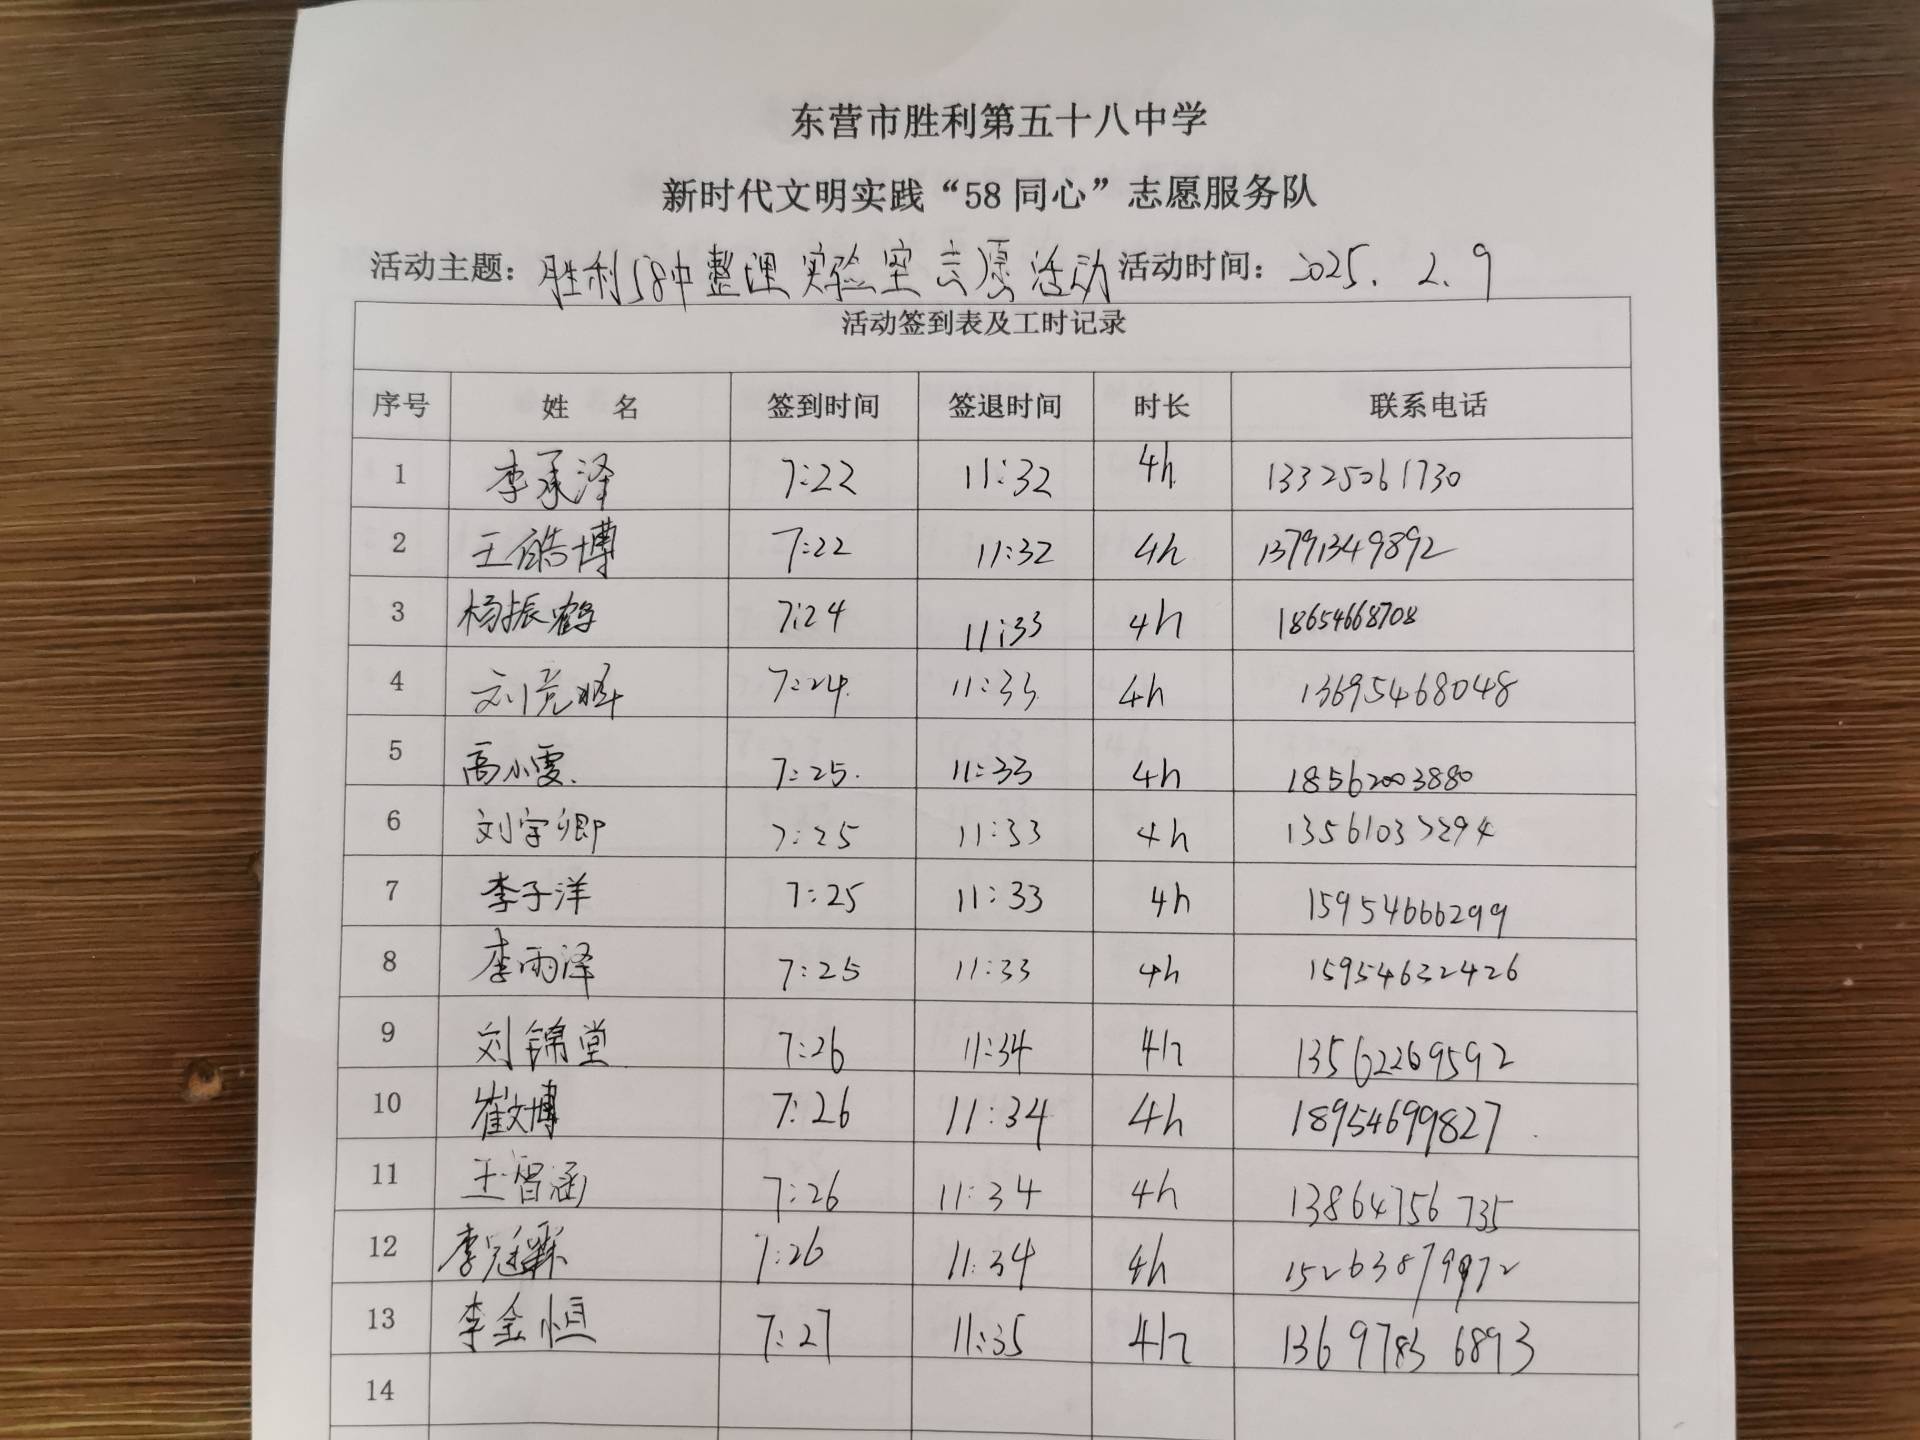 东营市胜利第五十八中学
新时代文明实践“58同心”志愿服务队
活动主题：胜利58中整理实验室志愿活动 活动时间：2025.2.9
活动签到表及工时记录
序号 姓名 签到时间 签退时间 时长 联系电话
1 李承泽 7:22 11:32 4h 13325061730
2 王皓博 7:22 11:32 4h 13791349892
3 杨振鹤 7:24 11:33 4h 18654668708
4 7:24 11:33 4h 13695468048
5 高小雯 7:25 11:33 4h 18562003880
6 刘宇卿 7:25 11:33 4h
7 李子洋 7:25 11:33 4h 15954666299
8 李雨泽 7:25 11:33 4h 15954632426
9 刘锦堂 7:26 11:34 4h 13562269592
10 崔文博 7:26 11:34 4h 18954699827
11 王智涵 7:26 11:34 4h 13864756735
12 7:26 11:34 4h
13 李金恒 7:27 11:35 4h 13697836893
14